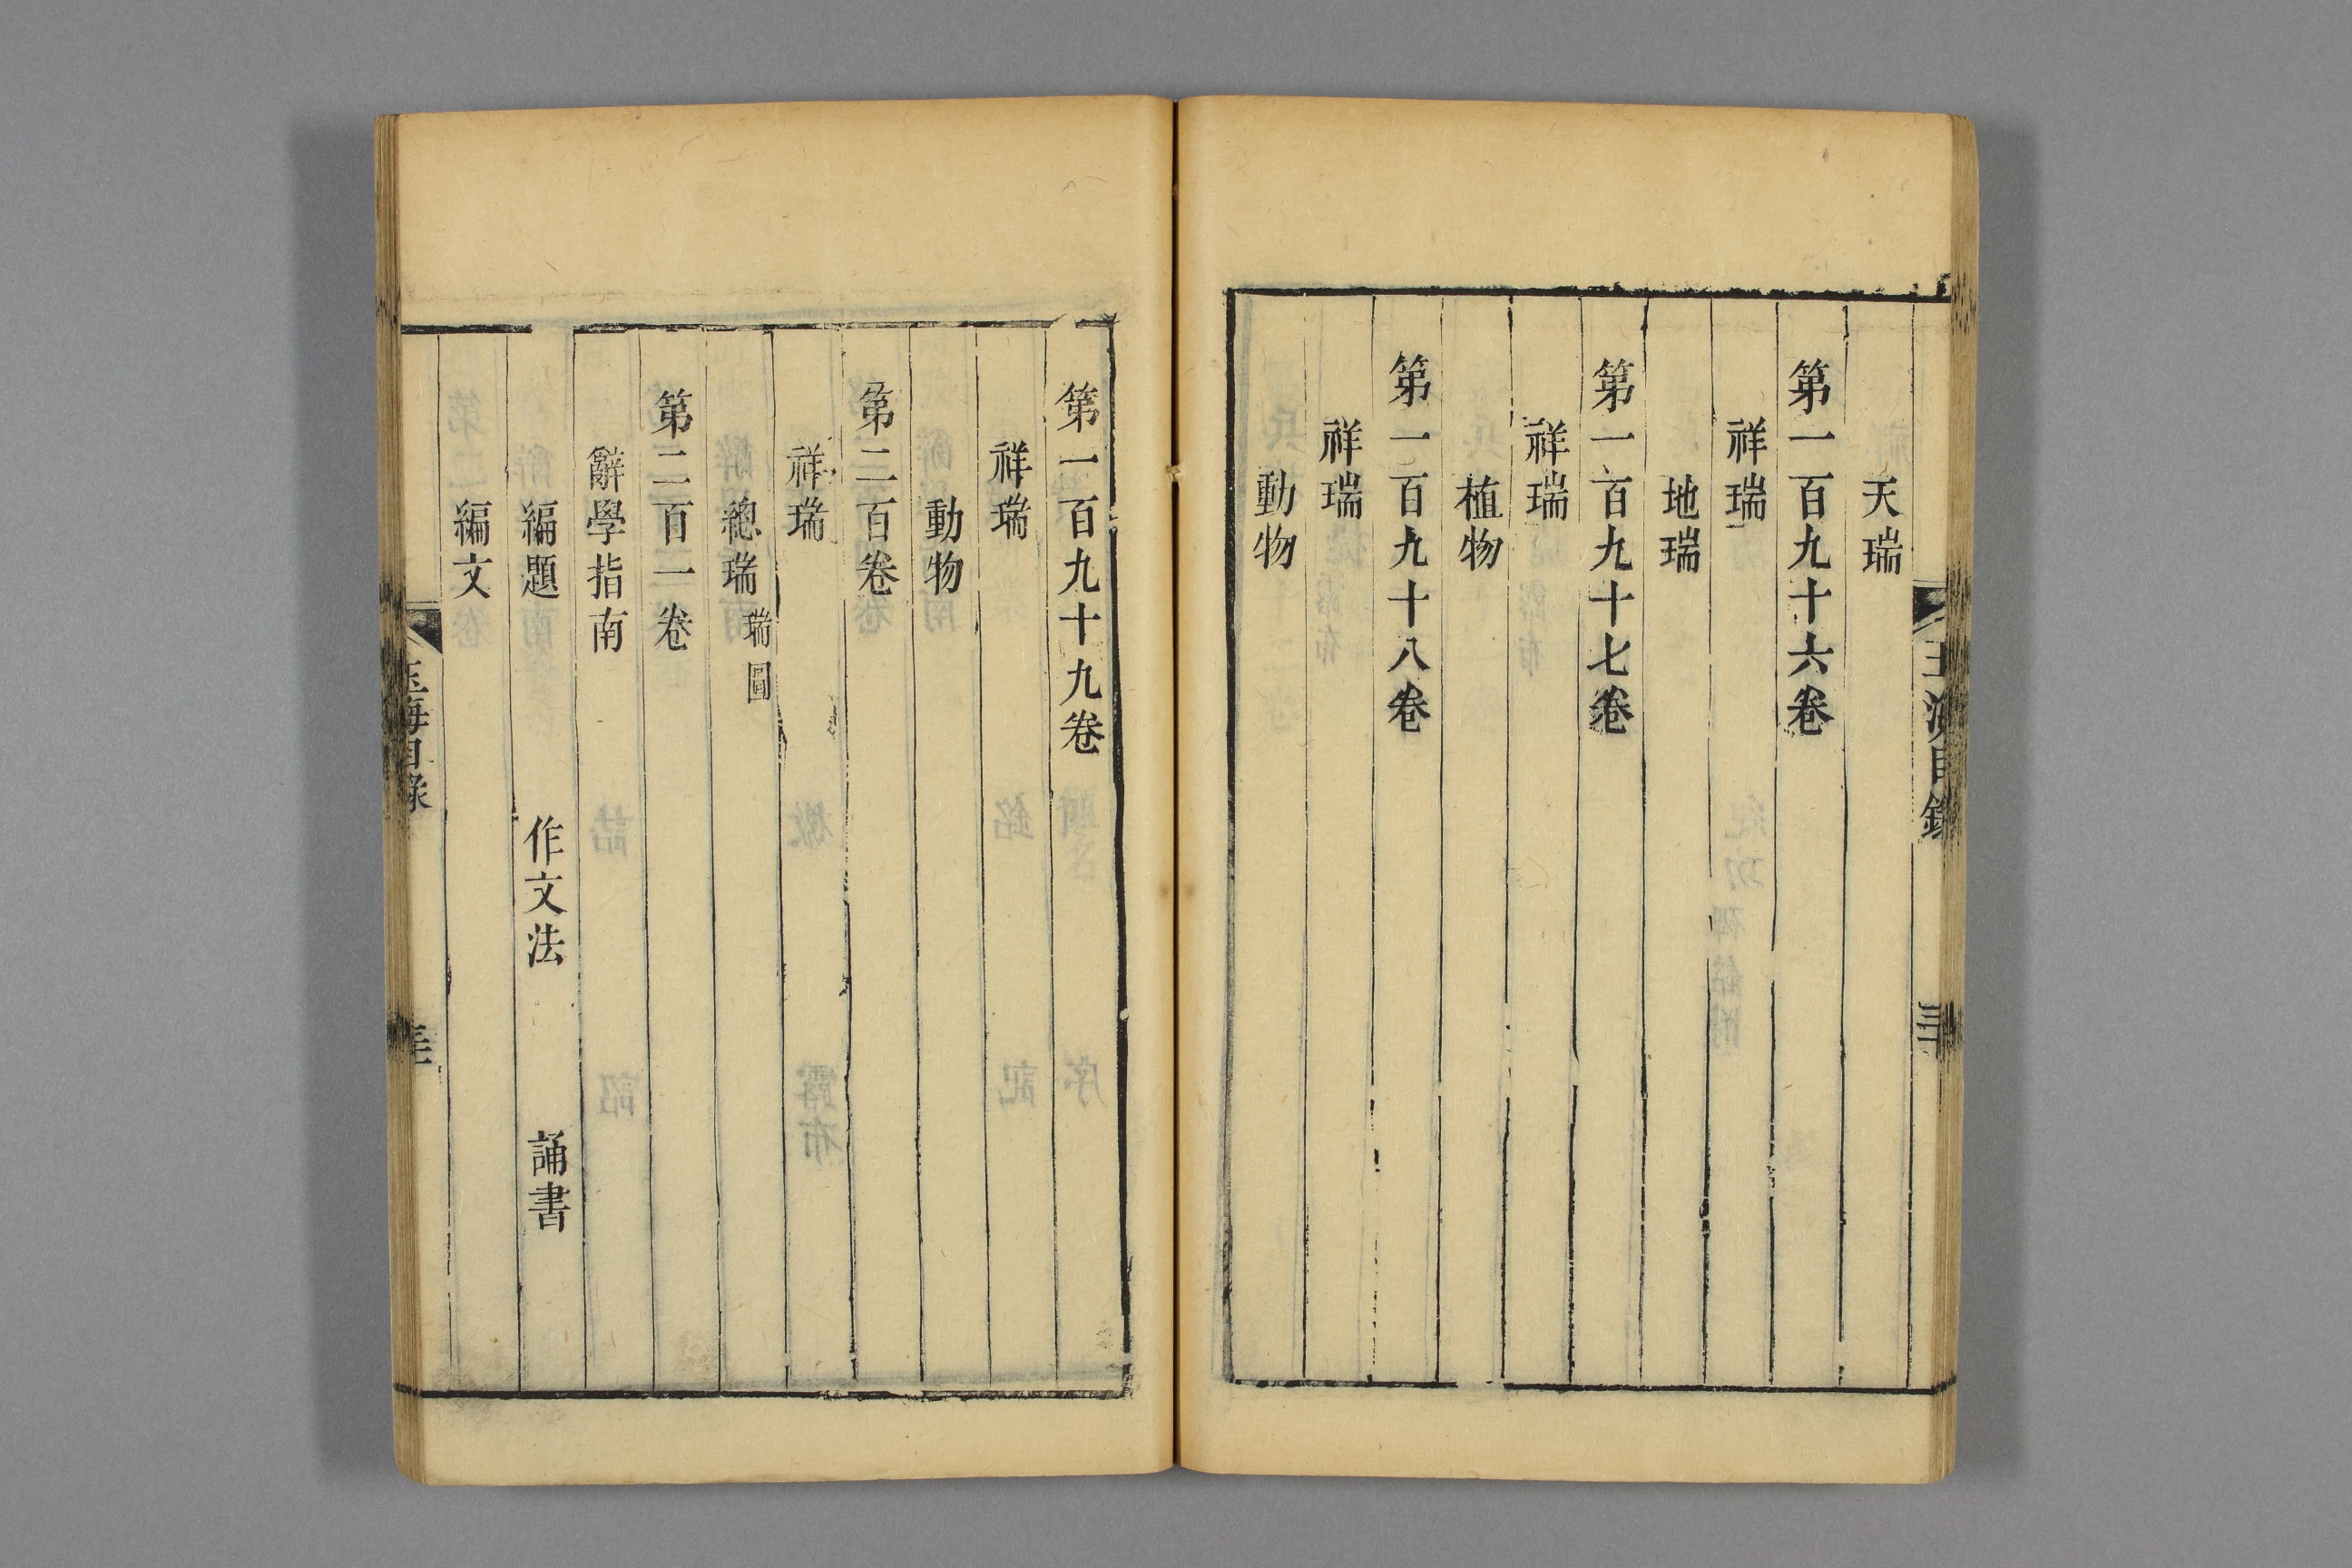 天瑞
第一百九十六卷
祥瑞
地瑞
第一百九十七卷
祥瑞
植物
第一百九十八卷
祥瑞
動物
第一百九十九卷
祥瑞
動物
第二百卷
祥瑞
總瑞 瑞圖
第二百一卷
辭學指南
編題 作文法 誦書
編文
玉海目錄
玉海目録